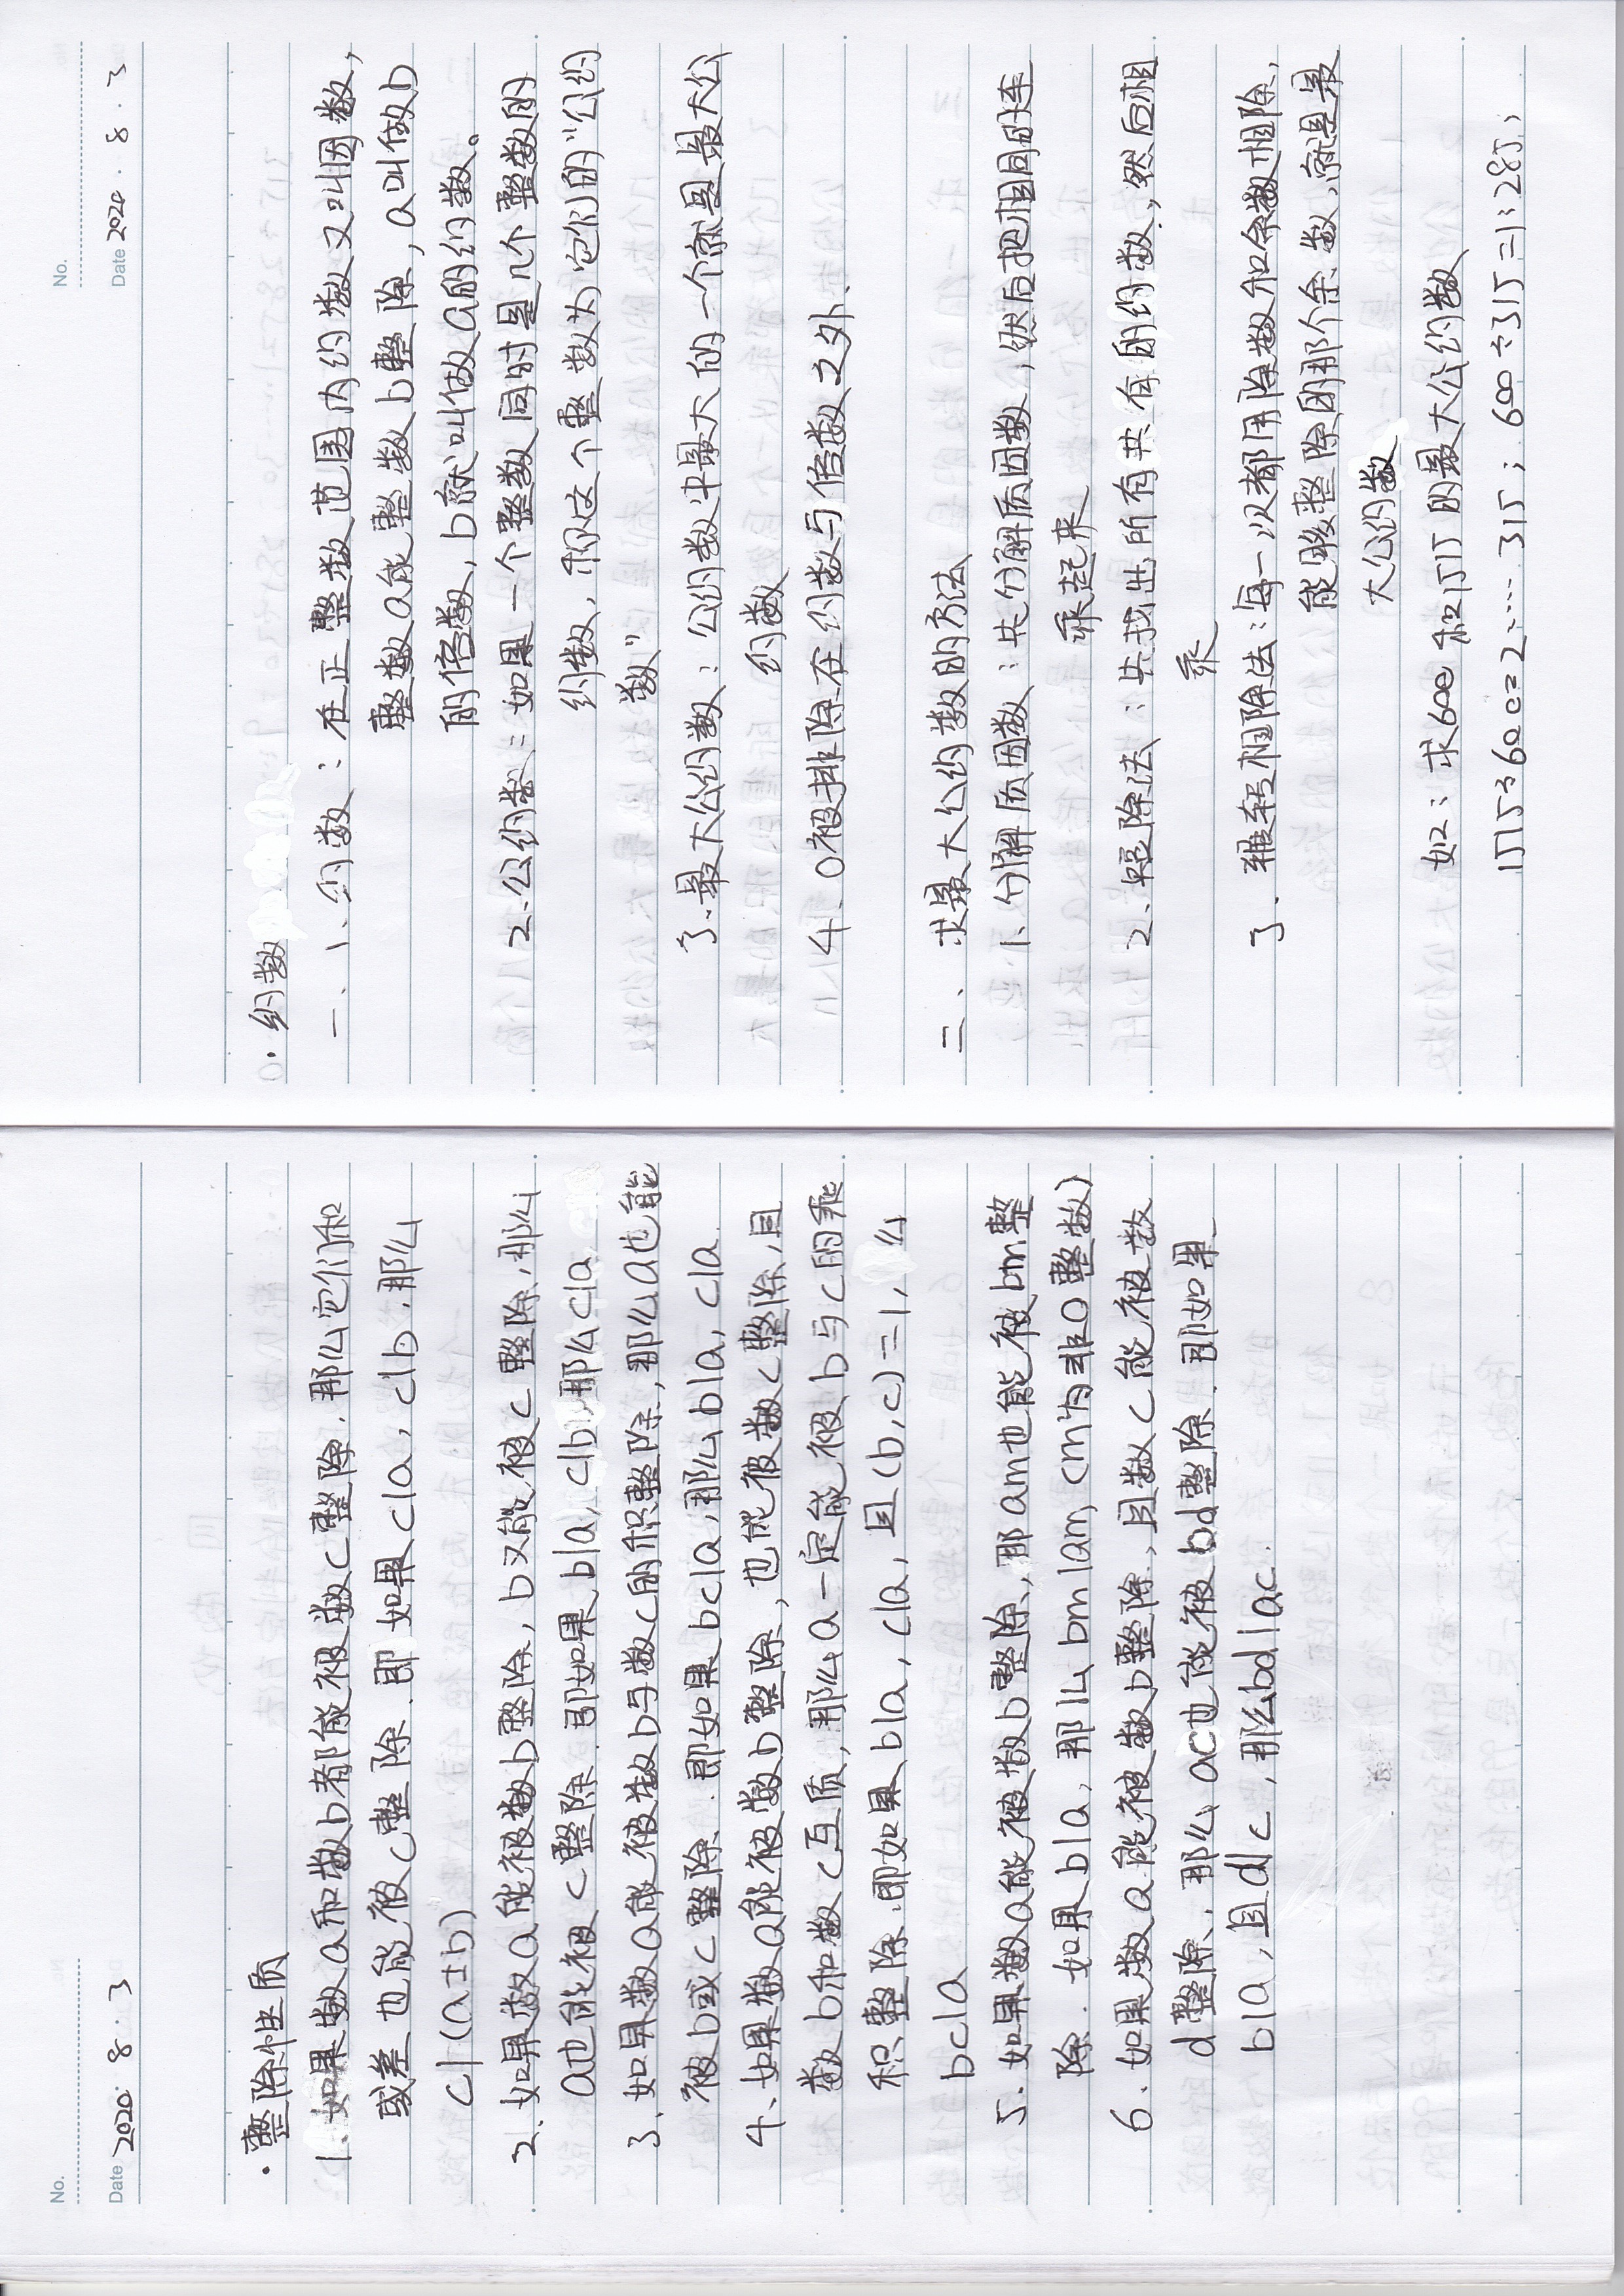 No.
Date 2020 · 8 · 3
· 整除性质
1. 如果数a和数b都能被数c整除，那么它们和
或差也能被c整除．即如果c|a，c|b，那么
c|(a±b)
2. 如果数a能被数b整除，b又能被c整除，那么
a也能被c整除．即如果b|a，c|b，那么c|a．
3、如果数a能被数b与数c的积整除，那么a也能
被b或c整除．即如果bc|a，那么b|a，c|a
4、如果数a能被数b整除，也能被数c整除，且
数b和数c互质，那么a一定能被b与c的乘
积整除．即如果b|a，c|a，且(b,c)=1，么
bc|a
5、如果数a能被数b整除，那am也能被bm整
除．如果b|a，那么bm|am，(m为非0整数)
6、如果数a能被数b整除，且数c能被数
d整除，那么ac也能被bd整除．即如果
b|a，且d|c，那么bd|ac．
No.
Date 2020 · 8 · 3
· 约数
一、1、约数：在正整数范围内约数又叫因数，
整数a能整数b整除，a叫做b
的倍数，b就叫做a的约数。
2、公约数：如果一个整数同时是几个整数的
约数，称这个整数为它们的“公约
数”
3、最大公约数：公约数中最大的一个就是最大公
约数
4、0被排除在约数与倍数之外、
二、求最大公约数的方法
1、分解质因数：共分解质因数，然后把相同的连
乘起来
2、短除法：共找出所有共有的约数，然后相
乘
3、辗转相除法：每一次都用除数和余数相除，
能够整除的那个余数，就是最
大公约数
如：求600和1515的最大公约数
1515÷600=2……315；600÷315=1……285；